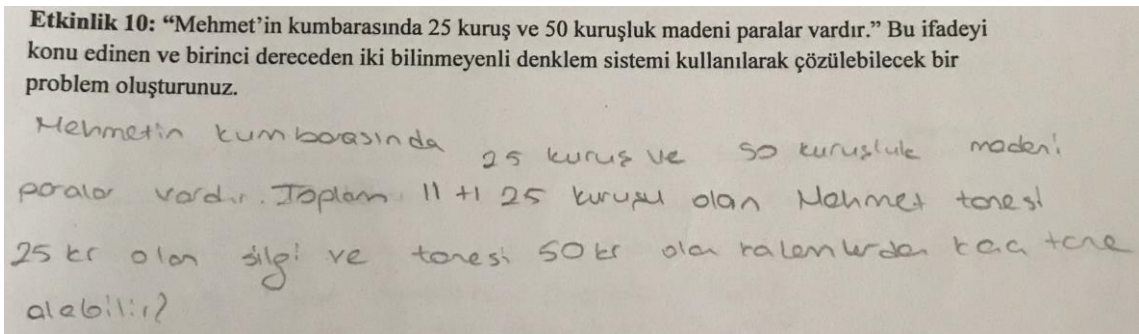 Etkinlik 10: “Mehmet’in kumbarasında 25 kuruş ve 50 kuruşluk madeni paralar vardır.” Bu ifadeyi
konu edinen ve birinci dereceden iki bilinmeyenli denklem sistemi kullanılarak çözülebilecek bir
problem oluşturunuz.
Mehmetin kumbarasında 25 kuruş ve 50 kuruşluk madeni
paralar vardır. Toplam 11 tl 25 kuruşu olan Mehmet tanesi
25 kr olan silgi ve tanesi 50 kr olan kalemlerden kaç tane
alabilir?